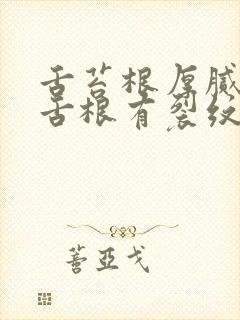 舌苔根厚腻
舌根有裂纹
善亚戈